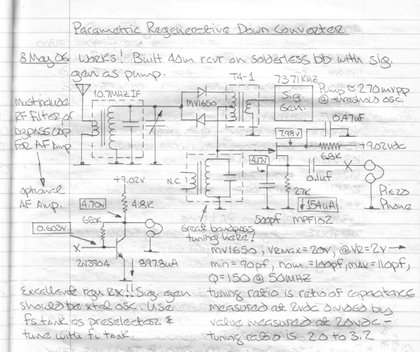 Parametric Regenerative Down Converter
8 May 06 Works! Built 40m rcvr on solderless bb with sig.
gen as pump.
T4-1
7371KHz
Pump ≈ 270mvpp
@ threshold osc.
10.7MHz IF
MV1650
Sig
Gen.
0.47uF
Must include
RF Filter or
bypass cap
for AF Amp.
7.98V
+9.02VDC
6.8K
0.1uF
X
N.C.
optional
AF Amp.
+9.02V
4.70V
4.8K
2.7K
154uA
Piezo
Phone
500pf
MPF102
0.603V
620K
X
Great bandpass
tuning here!
2N3904
897.8uA
MV1650, VRmax=20V, @VR=2V→
min=90pf, nom.=100pf, max=110pf,
Q=150 @ 50MHz
Excellent rgn Rx!! Sig gen
should be xtal osc. Use
Fs tank as preselector &
tune with Fi tank.
tuning ratio is ratio of capacitance
measured at 2VDC divided by
value measured at 20VDC -
tuning ratio is 2.0 to 3.2